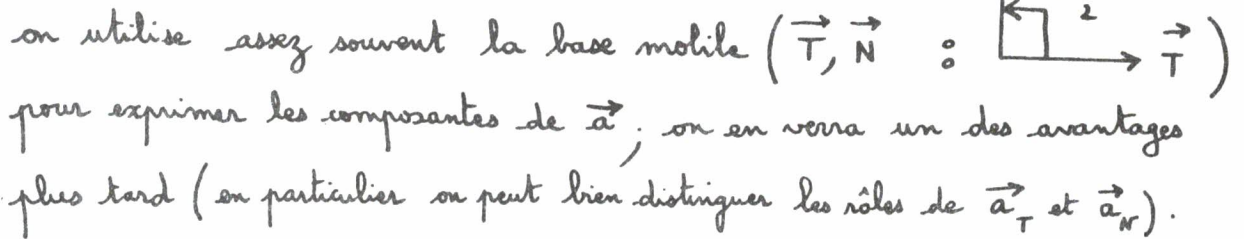 on utilise assez souvent la base mobile (T⃗, N⃗ : 2 T⃗)
pour exprimer les composantes de a⃗ ; on en verra un des avantages
plus tard (en particulier on peut bien distinguer les rôles de a⃗_T et a⃗_N).